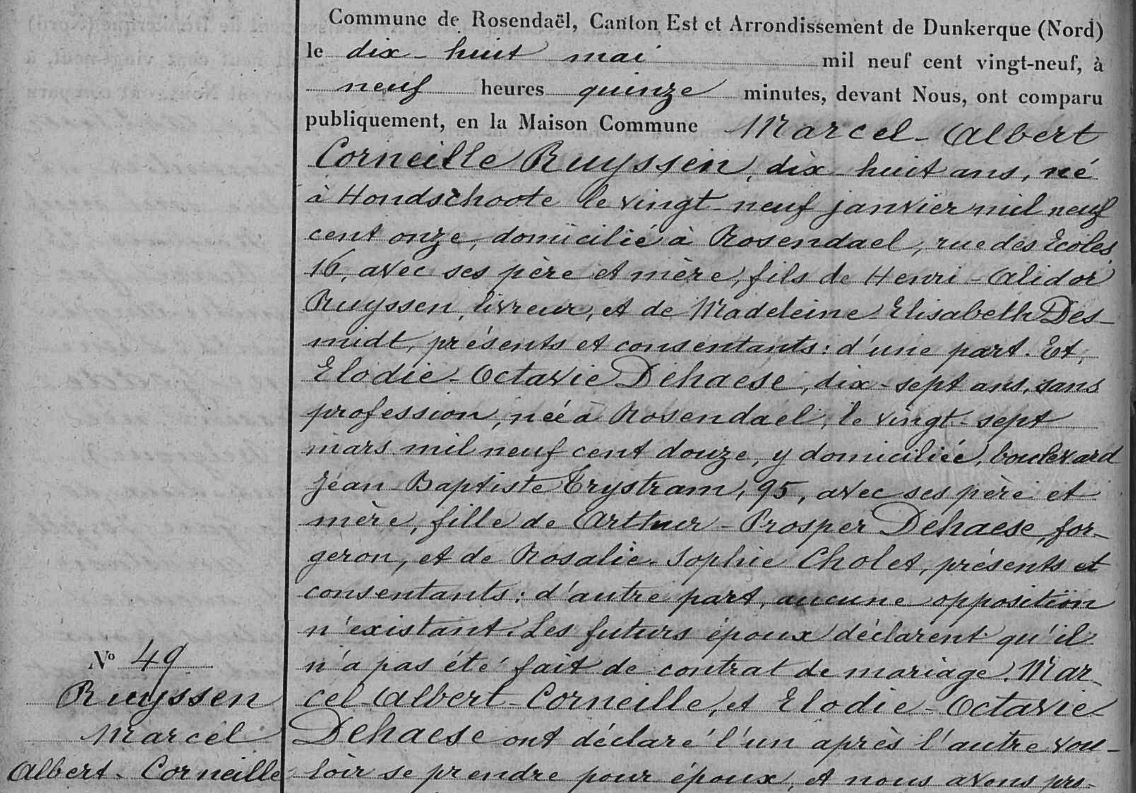 Commune de Rosendaël, Canton Est et Arrondissement de Dunkerque (Nord)
le dix-huit mai mil neuf cent vingt-neuf, à
neuf heures quinze minutes, devant Nous, ont comparu
publiquement, en la Maison Commune Marcel-Albert
Corneille Ruyssen, dix huit ans, né
à Hondschoote le vingt-neuf janvier mil neuf
cent onze, domicilié à Rosendael, rue des Ecoles
16, avec ses père et mère, fils de Henri-Alidor
Ruyssen, livreur, et de Madeleine Elisabeth Des-
midt, présents et consentants: d'une part. Et,
Elodie-Octavie Dehaese, dix-sept ans, sans
profession, née à Rosendael, le vingt-sept
mars mil neuf cent douze, y domiciliée, boulevard
Jean Baptiste Trystram, 95, avec ses père et
mère, fille de Arthur-Prosper Dehaese, for-
geron, et de Rosalie-Sophie Cholet, présents et
consentants: d'autre part, aucune opposition
n'existant. Les futurs époux déclarent qu'il
n'a pas été fait de contrat de mariage. Mar-
cel-Albert-Corneille, et Elodie-Octavie
Dehaese ont déclaré l'un après l'autre vou-
loir se prendre pour époux, et nous avons pro-
N° 49
Ruyssen
Marcel
Albert-Corneille